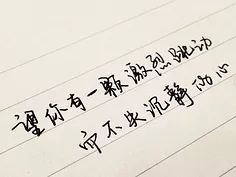 望你有一颗激烈跳动
而不失沉静的心